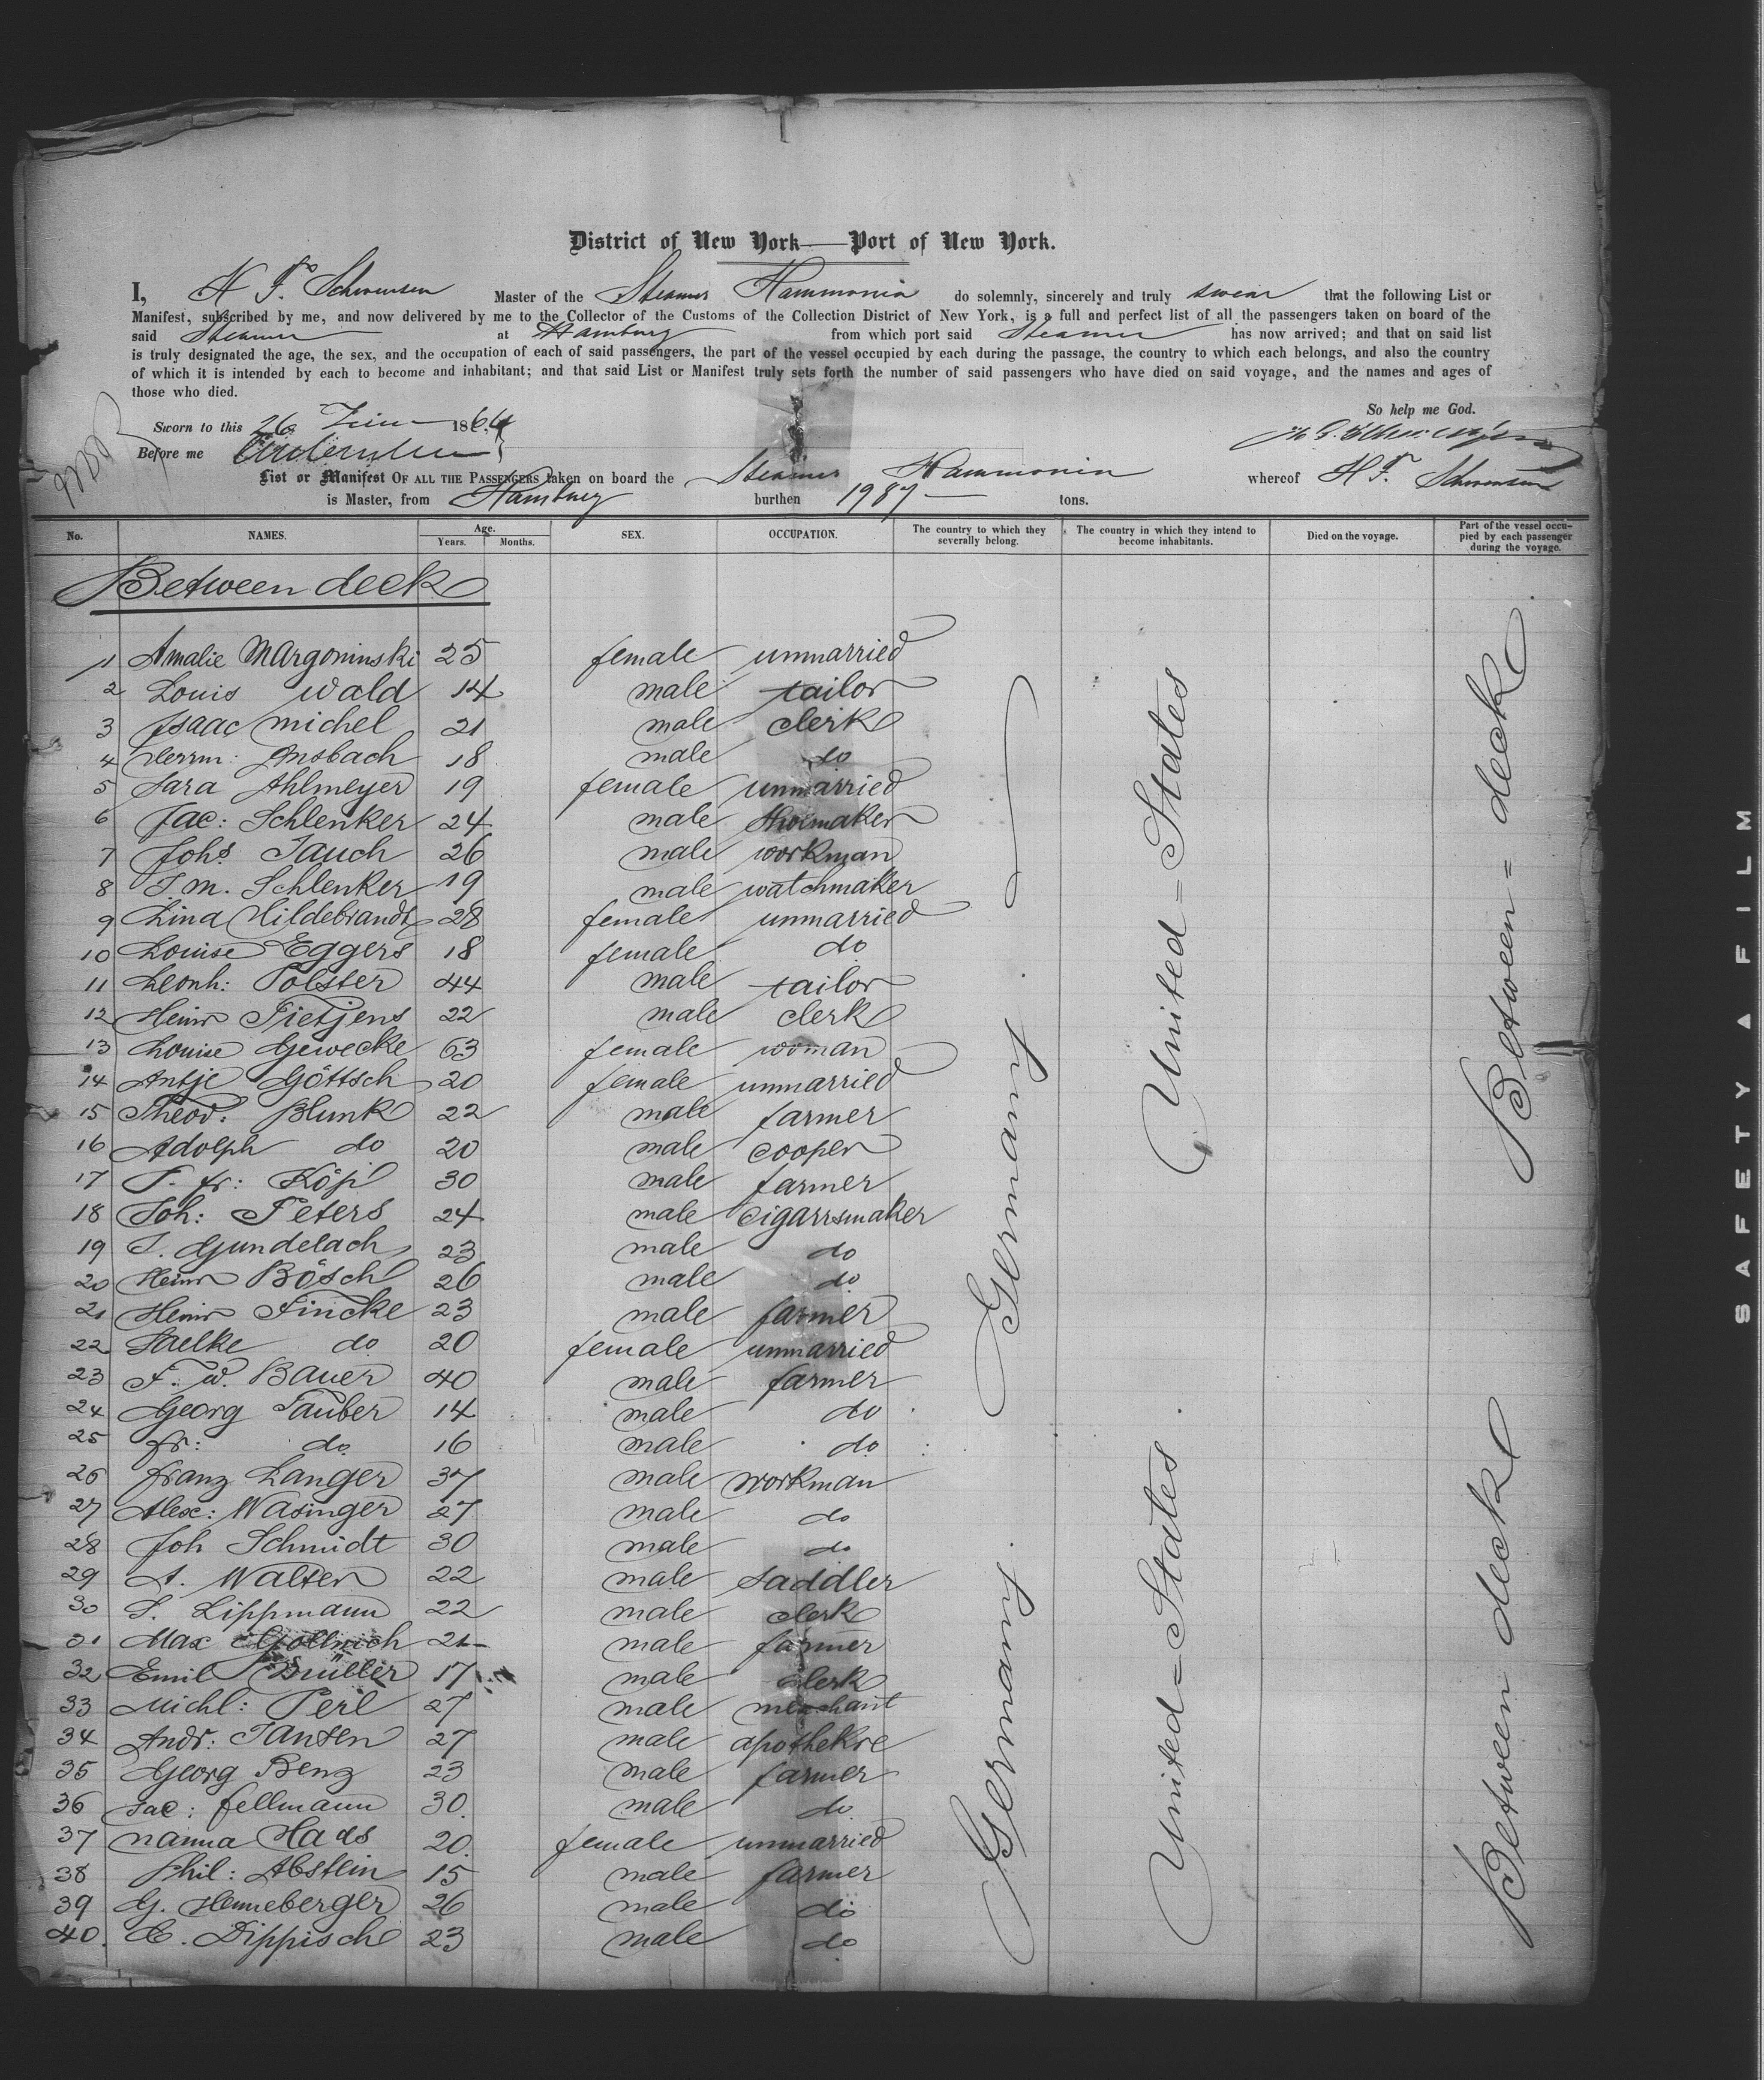 District of New York—Port of New York.
I, H. F. Schwensen Master of the Steamer Hammonia do solemnly, sincerely and truly swear that the following List or
Manifest, subscribed by me, and now delivered by me to the Collector of the Customs of the Collection District of New York, is a full and perfect list of all the passengers taken on board of the
said Steamer at Hamburg from which port said Steamer has now arrived; and that on said list
is truly designated the age, the sex, and the occupation of each of said passengers, the part of the vessel occupied by each during the passage, the country to which each belongs, and also the country
of which it is intended by each to become and inhabitant; and that said List or Manifest truly sets forth the number of said passengers who have died on said voyage, and the names and ages of
those who died.
So help me God.
Sworn to this 26 1864
Before me
List or Manifest OF ALL THE PASSENGERS taken on board the Steamer Hammonia whereof H. F. Schwensen
is Master, from Hamburg burthen 1987 tons.
No. NAMES. Age. Years. Months. SEX. OCCUPATION. The country to which they severally belong. The country in which they intend to become inhabitants. Died on the voyage. Part of the vessel occupied by each passenger during the voyage.
Between deck
1 Amalie Margoninski 25 female unmarried
2 Louis Wald 14 male tailor
3 Isaac Michel 21 male clerk
4 Herrm: Ansbach 18 male do
5 Sara Ahlmeyer 19 female unmarried
6 Jac: Schlenker 24 male shoemaker
7 Johs Jauch 26 male workman
8 J m. Schlenker 19 male watchmaker
9 Lina Hildebrandt 28 female unmarried
10 Louise Eggers 18 female do
11 Leonh: Polster 44 male tailor
12 Heinr Tietjens 22 male clerk
13 Louise Gewecke 63 female woman
14 Antje Göttsch 20 female unmarried
15 Theod: Blunk 22 male farmer
16 Adolph do 20 male cooper
17 J. fr: Köpi 30 male farmer
18 Joh: Peters 24 male cigarrsmaker
19 J. Gundelach 23 male do
20 Heinr Bösch 26 male do
21 Heinr Fincke 23 male farmer
22 Saelke do 20 female unmarried
23 F. W. Bauer 40 male farmer
24 Georg Tauber 14 male do
25 fr: do 16 male do
26 franz Langer 37 male workman
27 Alex: Wasinger 27 male do
28 Joh Schmidt 30 male do
29 A. Walter 22 male saddler
30 S. Lippmann 22 male clerk
31 Max Gollnich 21 male farmer
32 Emil 17 male clerk
33 Michl: Perl 27 male merchant
34 Andr: Jansen 27 male apothekre
35 Georg Benz 23 male farmer
36 Jac: fellmann 30 male do
37 Nanna Haas 20 female unmarried
38 Phil: Abstein 15 male farmer
39 G. Henneberger 26 male do
40. C. Dippisch 23 male do
Germany.
Germany.
United=States
United=States
Between=deck
Between deck
SAFETY ▲ FILM